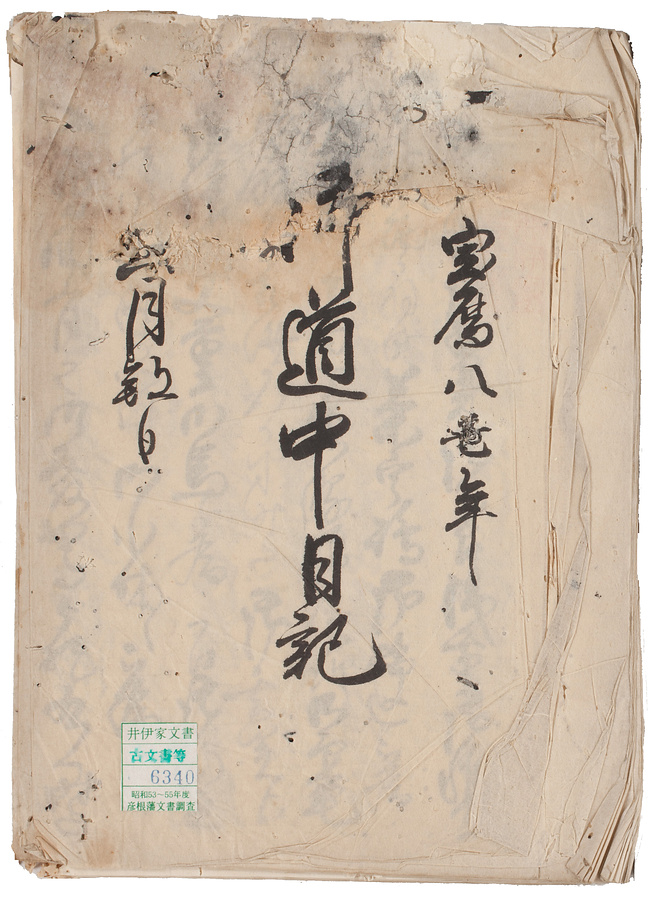 宝暦八寅年
御道中日記
月 日
井伊家文書
古文書等
6340
昭和53～55年度
彦根藩文書調査